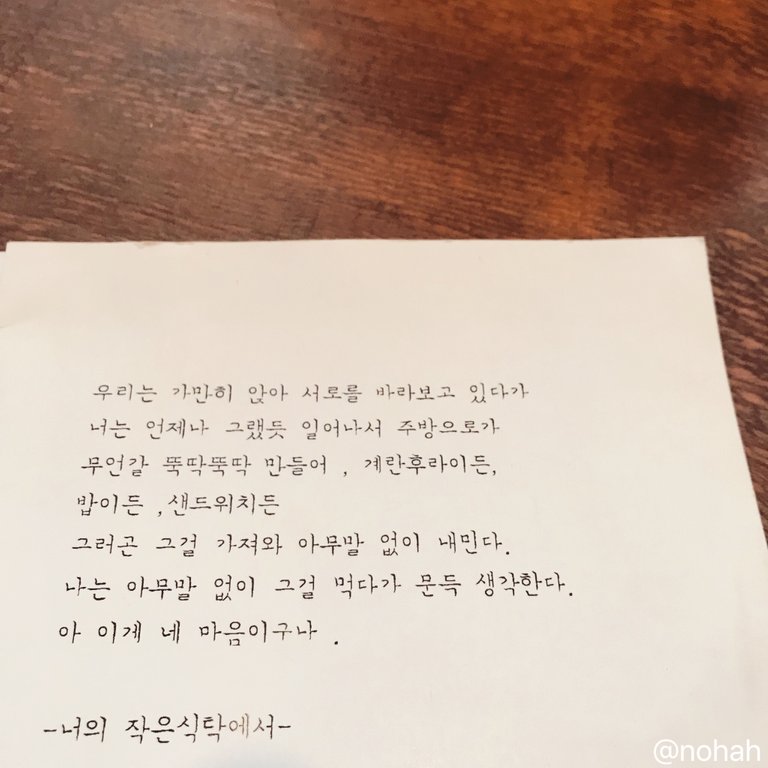 우리는 가만히 앉아 서로를 바라보고 있다가
너는 언제나 그랬듯 일어나서 주방으로가
무언갈 뚝딱뚝딱 만들어 , 계란후라이든,
밥이든 ,샌드위치든
그러곤 그걸 가져와 아무말 없이 내민다.
나는 아무말 없이 그걸 먹다가 문득 생각한다.
아 이게 네 마음이구나 .
-너의 작은식탁에서-
@nohah